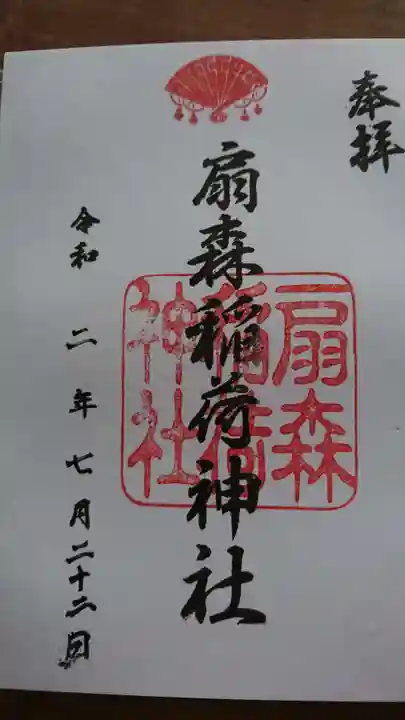 奉拝
扇森稲荷神社
扇森
稲荷
神社
令和二年七月二十二日